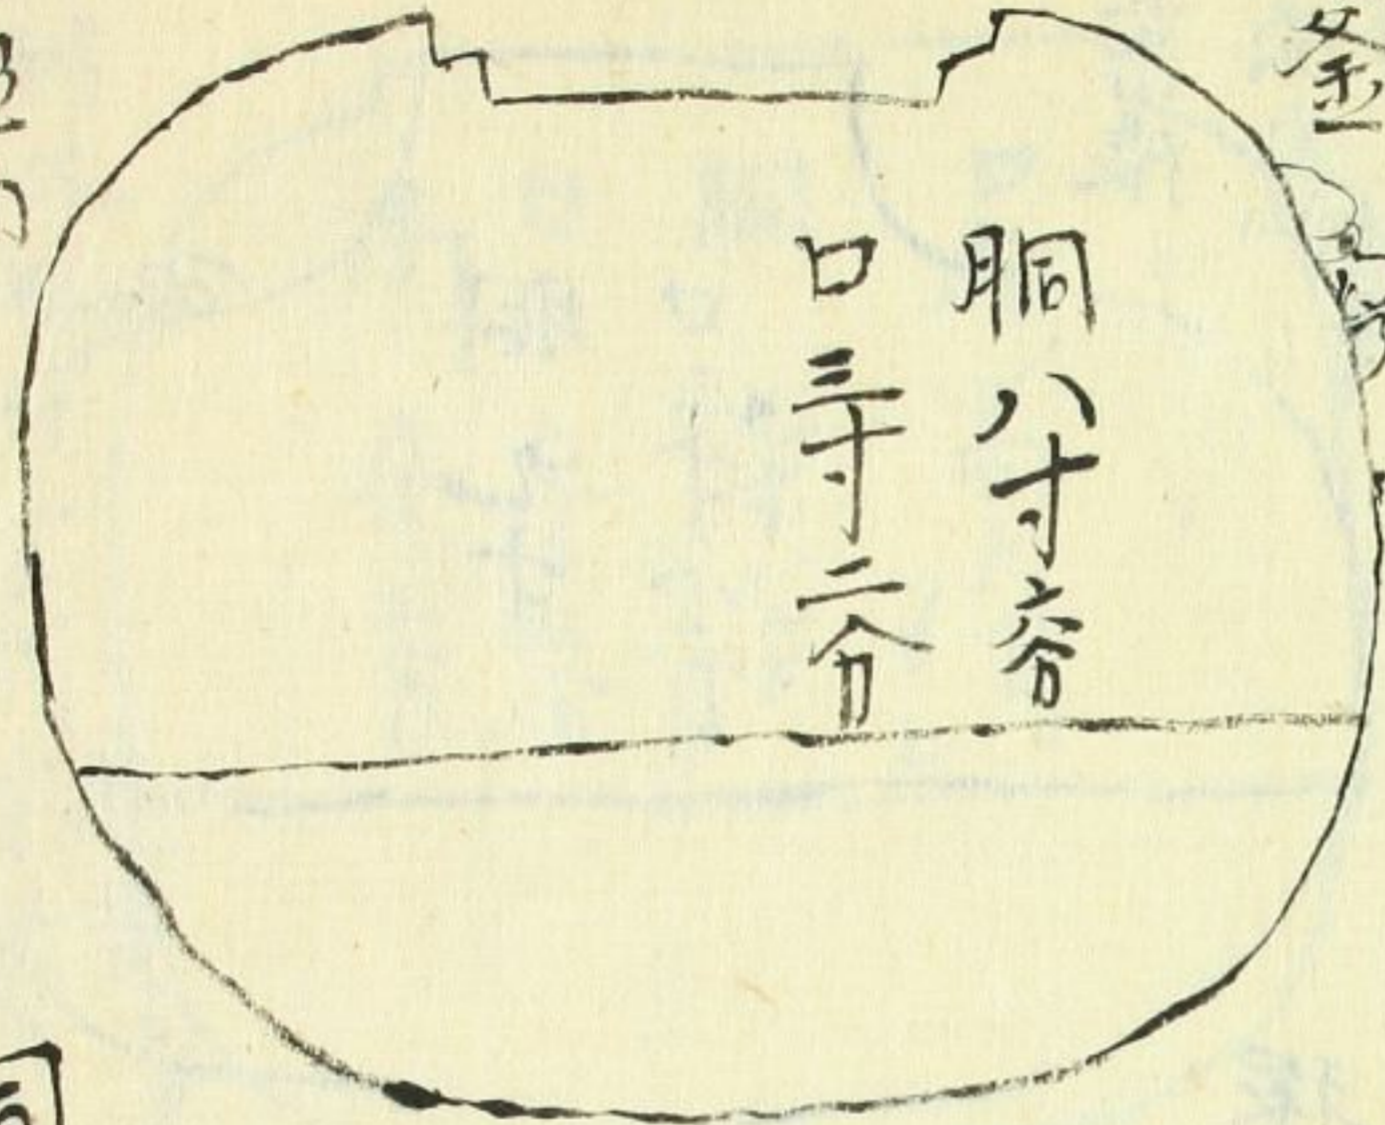 釜
胴八寸六分
口三寸二分